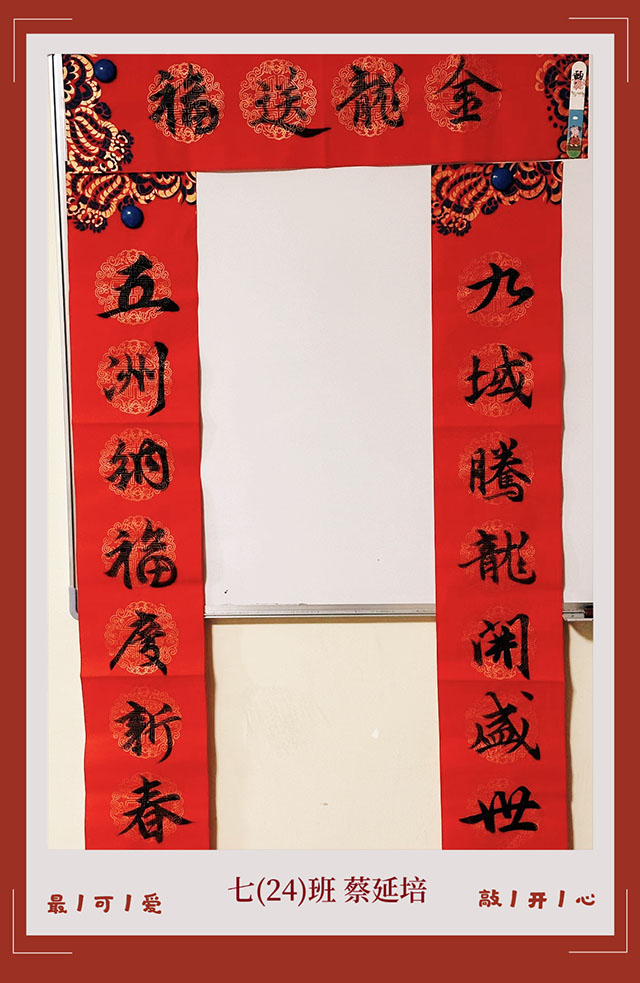 金龍送福
九域騰龍開盛世
五洲納福慶新春
七(24)班 蔡延培
最|可|爱
敲|开|心